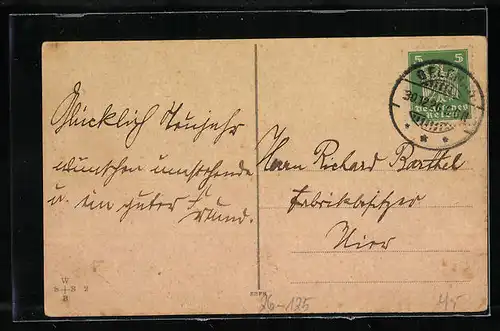 Glücklich Neujahr
wünschen umstehende
u. ein guter Freund.
Herrn Richard Barthel
Fabrikbesitzer
Hier
5 5
30.12.
Deutsches
Reich
W
S+S 2
B
26-125